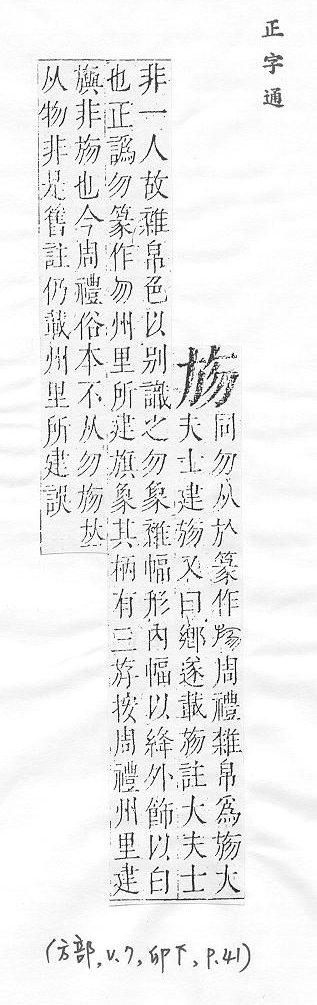 正字通
𣃦
同勿从於篆作𣃦周禮雜帛爲𣃦大
夫士建𣃦又曰鄉遂載𣃦註大夫士
非一人故雜帛色以别識之勿象雜幅形内幅以絳外飾以白
也正譌勿篆作勿州里所建旗象其柄有三斿按周禮州里建
旟非𣃦也今周禮俗本不从勿𣃦㫃
从物非是舊註仍載州里所建誤
(方部, v.7, 卯下, p.41)